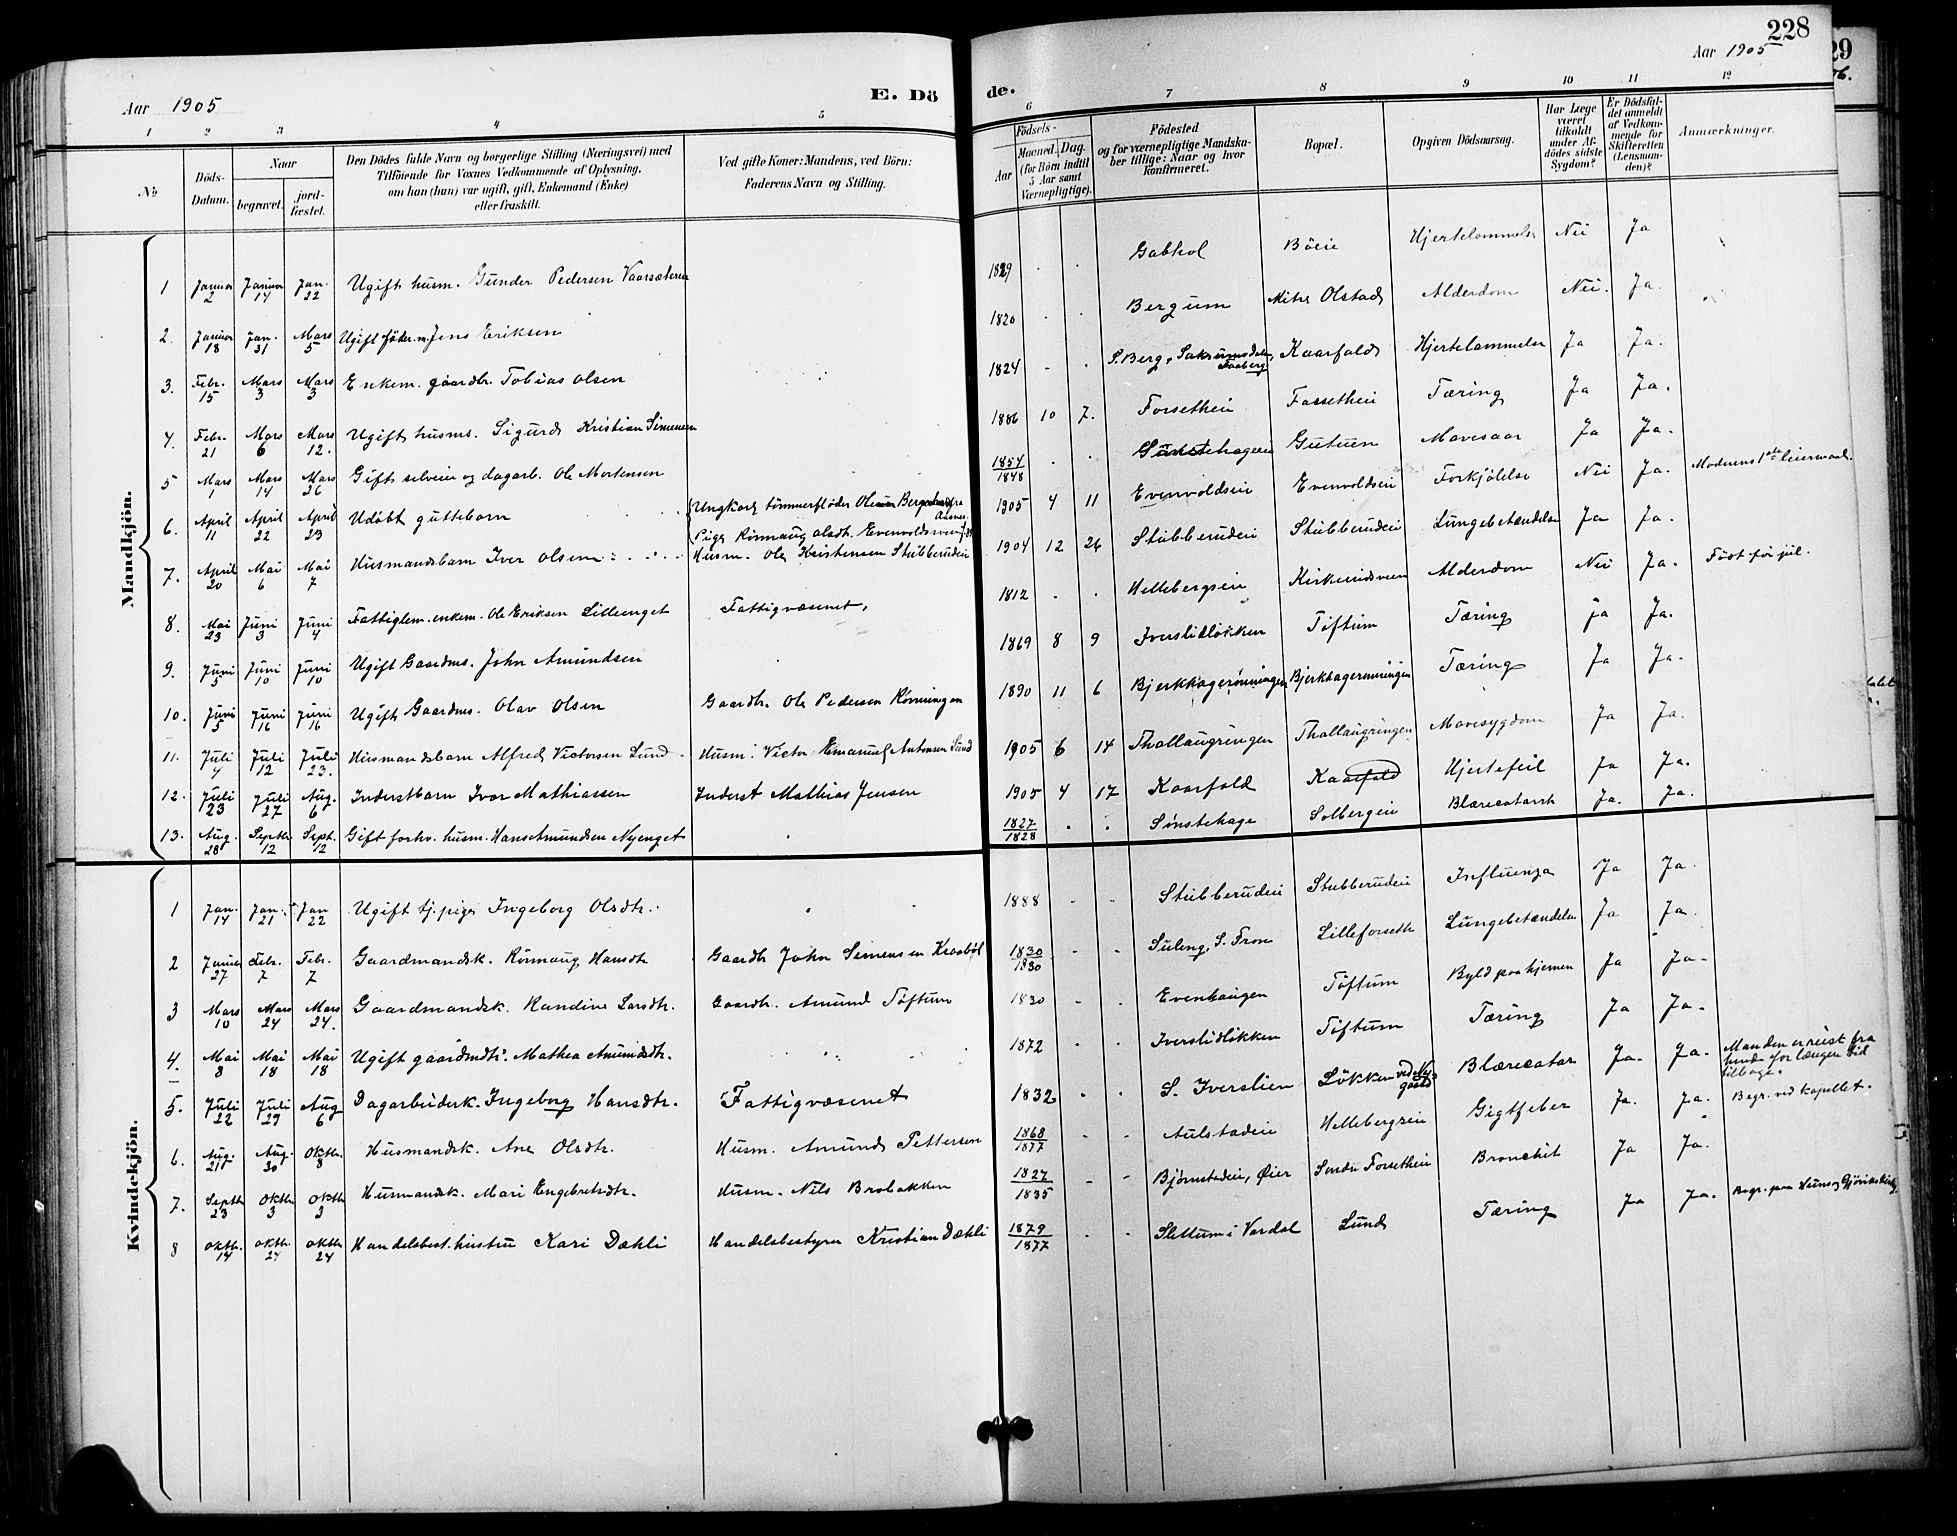 228
29
Aar 1905
E. Dö
de.
Aar 1905
06.
1 2 3 4 5 6 7 8 9 10 11 12
No
Döds-Datum.
Naar
begravet.
jord-fæstet.
Den Dödes fulde Navn og borgerlige Stilling (Næringsvei) med
Tilföiende for Voxnes Vedkommende af Oplysning,
om han (hun) var ugift, gift, Enkemand (Enke)
eller fraskilt.
Ved gifte Koner: Mandens, ved Börn:
Faderens Navn og Stilling.
Födsels-
Aar
Maaned. Dag.
(for Börn indtil
5 Aar samt
Værnepligtige).
Födested
og for værnepligtige Mandska-
ber tillige: Naar og hvor
konfirmeret.
Bopæl.
Opgiven Dödsaarsag.
Har Læge
været
tilkaldt
under Af-
dödes sidste
Sygdom?
Er Dödsfal-
det anmeldt
af Vedkom-
mende for
Skifteretten
(Lensman-
den)?
Anmærkninger.
Mandkjön.
1 Januar 2 Januar 14 Jan. 22 Ugift husm. Gunder Pedersen Vaarsæteren 1829 Gabhol Böeie Hjertelammelse Nei Ja
2. Januar 18 Jan. 31 Mars 5 Ugift föder.m. Jens Eriksen 1820 Bergum Nitre Olstad Alderdom Nei. Ja.
3. Febr. 15 Mars 3 Mars 3 Enkem. gaardbr. Tobias Olsen 1824 S. Berg, Saksumsdalen, Faaberg Kaarfald Hjertelammelse Ja Ja.
4. Febr. 21 Mars 6 Mars 12. Ugift husms. Sigurd Kristian Simensen 1886 10 7. Forsetheie Fossetheie Tæring Ja Ja.
5 Mars 1 Mars 14 Mars 26 Gift selveier og dagarb. Ole Mortensen 1854 1848 Sønstehageeie Gutuen Mavesaar Ja Ja.
6. April 11 April 22 April 23 Udöbt guttebarn Ungkarl tömmerflöder Pige Rönnaug Olsdt. 1905 4 11 Evenvoldseie Evenvoldseie Forkjölelse Nei Ja. Moderens 1ste leiermaal.
7. April 20 Mai 6 Mai 7 Husmandsbarn Iver Olsen Husm. Ole Kristensen Stubberudeie 1904 12 26 Stubberudeie Stubberudeie Lungebetændelse Ja Ja.
8. Mai 23 Juni 3 Juni 4 Fattiglem. enkem. Ole Eriksen Lilleenget Fattigvæsenet. 1812 Hellebergseie Kirkerudsveen Alderdom Nei Ja. Föst för jul.
9. Juni 5 Juni 10 Juni 10 Ugift Gaardms. John Amundsen 1869 8 9 Iverslidlökken Töftum Tæring Ja Ja.
10. Juni 5 Juni 16 Juni 16 Ugift Gaardms. Olav Olsen Gaardbr. Ole Pedersen Rönningen 1890 11 6 Bjerkhagerönningen Bjerkhagerönningen Tæring Ja Ja.
11. Juli 4 Juli 12 Juli 23. Husmandsbarn Alfred Victorsen Lund Husm. Victor Emanuel Antonsen Lund 1905 6 14 Thallaugringen Thallaugringen Mavesygdom Ja Ja.
12. Juli 23 Juli 27 Aug. 6 Inderstbarn Ivar Mathiassen Inderst Mathias Jensen 1905 4 17 Kaarfald Kaarfald Hjertefeil Ja Ja.
13. Aug. 28 Septbr 12 Sept. 12 Gift forhv. husm. Hans Amundsen Nyenget 1827 1828 Sönstehage Solbergeie Blærecatarrh Ja. Ja.
Kvindekjön.
1 Jan. 14 Jan. 21 Jan 22 Ugift tj.pige Ingeborg Olsdtr. 1888 Stubberudeie Stubberudeie Influenza Ja Ja.
2 Januar 27 Febr. 7 Febr. 7 Gaardmandsk. Rönnaug Hansdtr Gaardbr John Simensen Kraaböl 1830 1830 Suleng, S. Fron Lilleforseth Lungebetændelse Ja Ja.
3 Mars 10 Mars 24 Mars 24. Gaardmandsk. Randine Larsdtr. Gaardbr. Amund Töftum 1830 Evenhaugen Töftum Byld paa hjernen Ja Ja.
4. Mai 8 Mai 18 Mai 18 Ugift gaardmdtr. Mathea Amundsdtr. 1872 Iverslidlökken Töftum Tæring Ja Ja.
5. Juli 22 Juli 29 Aug 6 Dagarbeiderk. Ingeborg Hansdtr. Fattigvæsenet 1832 S. Iverslien Lökken ved Nygaard Blærecatar Ja. Ja. Manden er reist fra hende for længere tid tilbage.
6. Aug. 21 Aug. 30 Oktbr. 8 Husmandsk. Ane Olsdtr. Husm. Amund Pettersen 1868 1877 Aulstadeie Hellebergseie Gigtfeber Ja. Ja. Begr. ved kapellet.
7. Septbr 23 Oktbr 3 Oktbr 3 Husmandsk. Mari Engebretsdtr. Husm. Nils Brobakken 1827 1835 Björnstadeie, Öier Söndre Forsetheie Bronchit Ja Ja.
8 Oktbr. 14 Oktbr 24 Oktbr 24 Handelsbest. hustru Kari Dæhli Handelsbestyrer Kristian Dæhli 1879 1877 Slettum i Vardal Lund Tæring Ja Ja. Begr. paa Hunn og Gjöviks kirkeg.